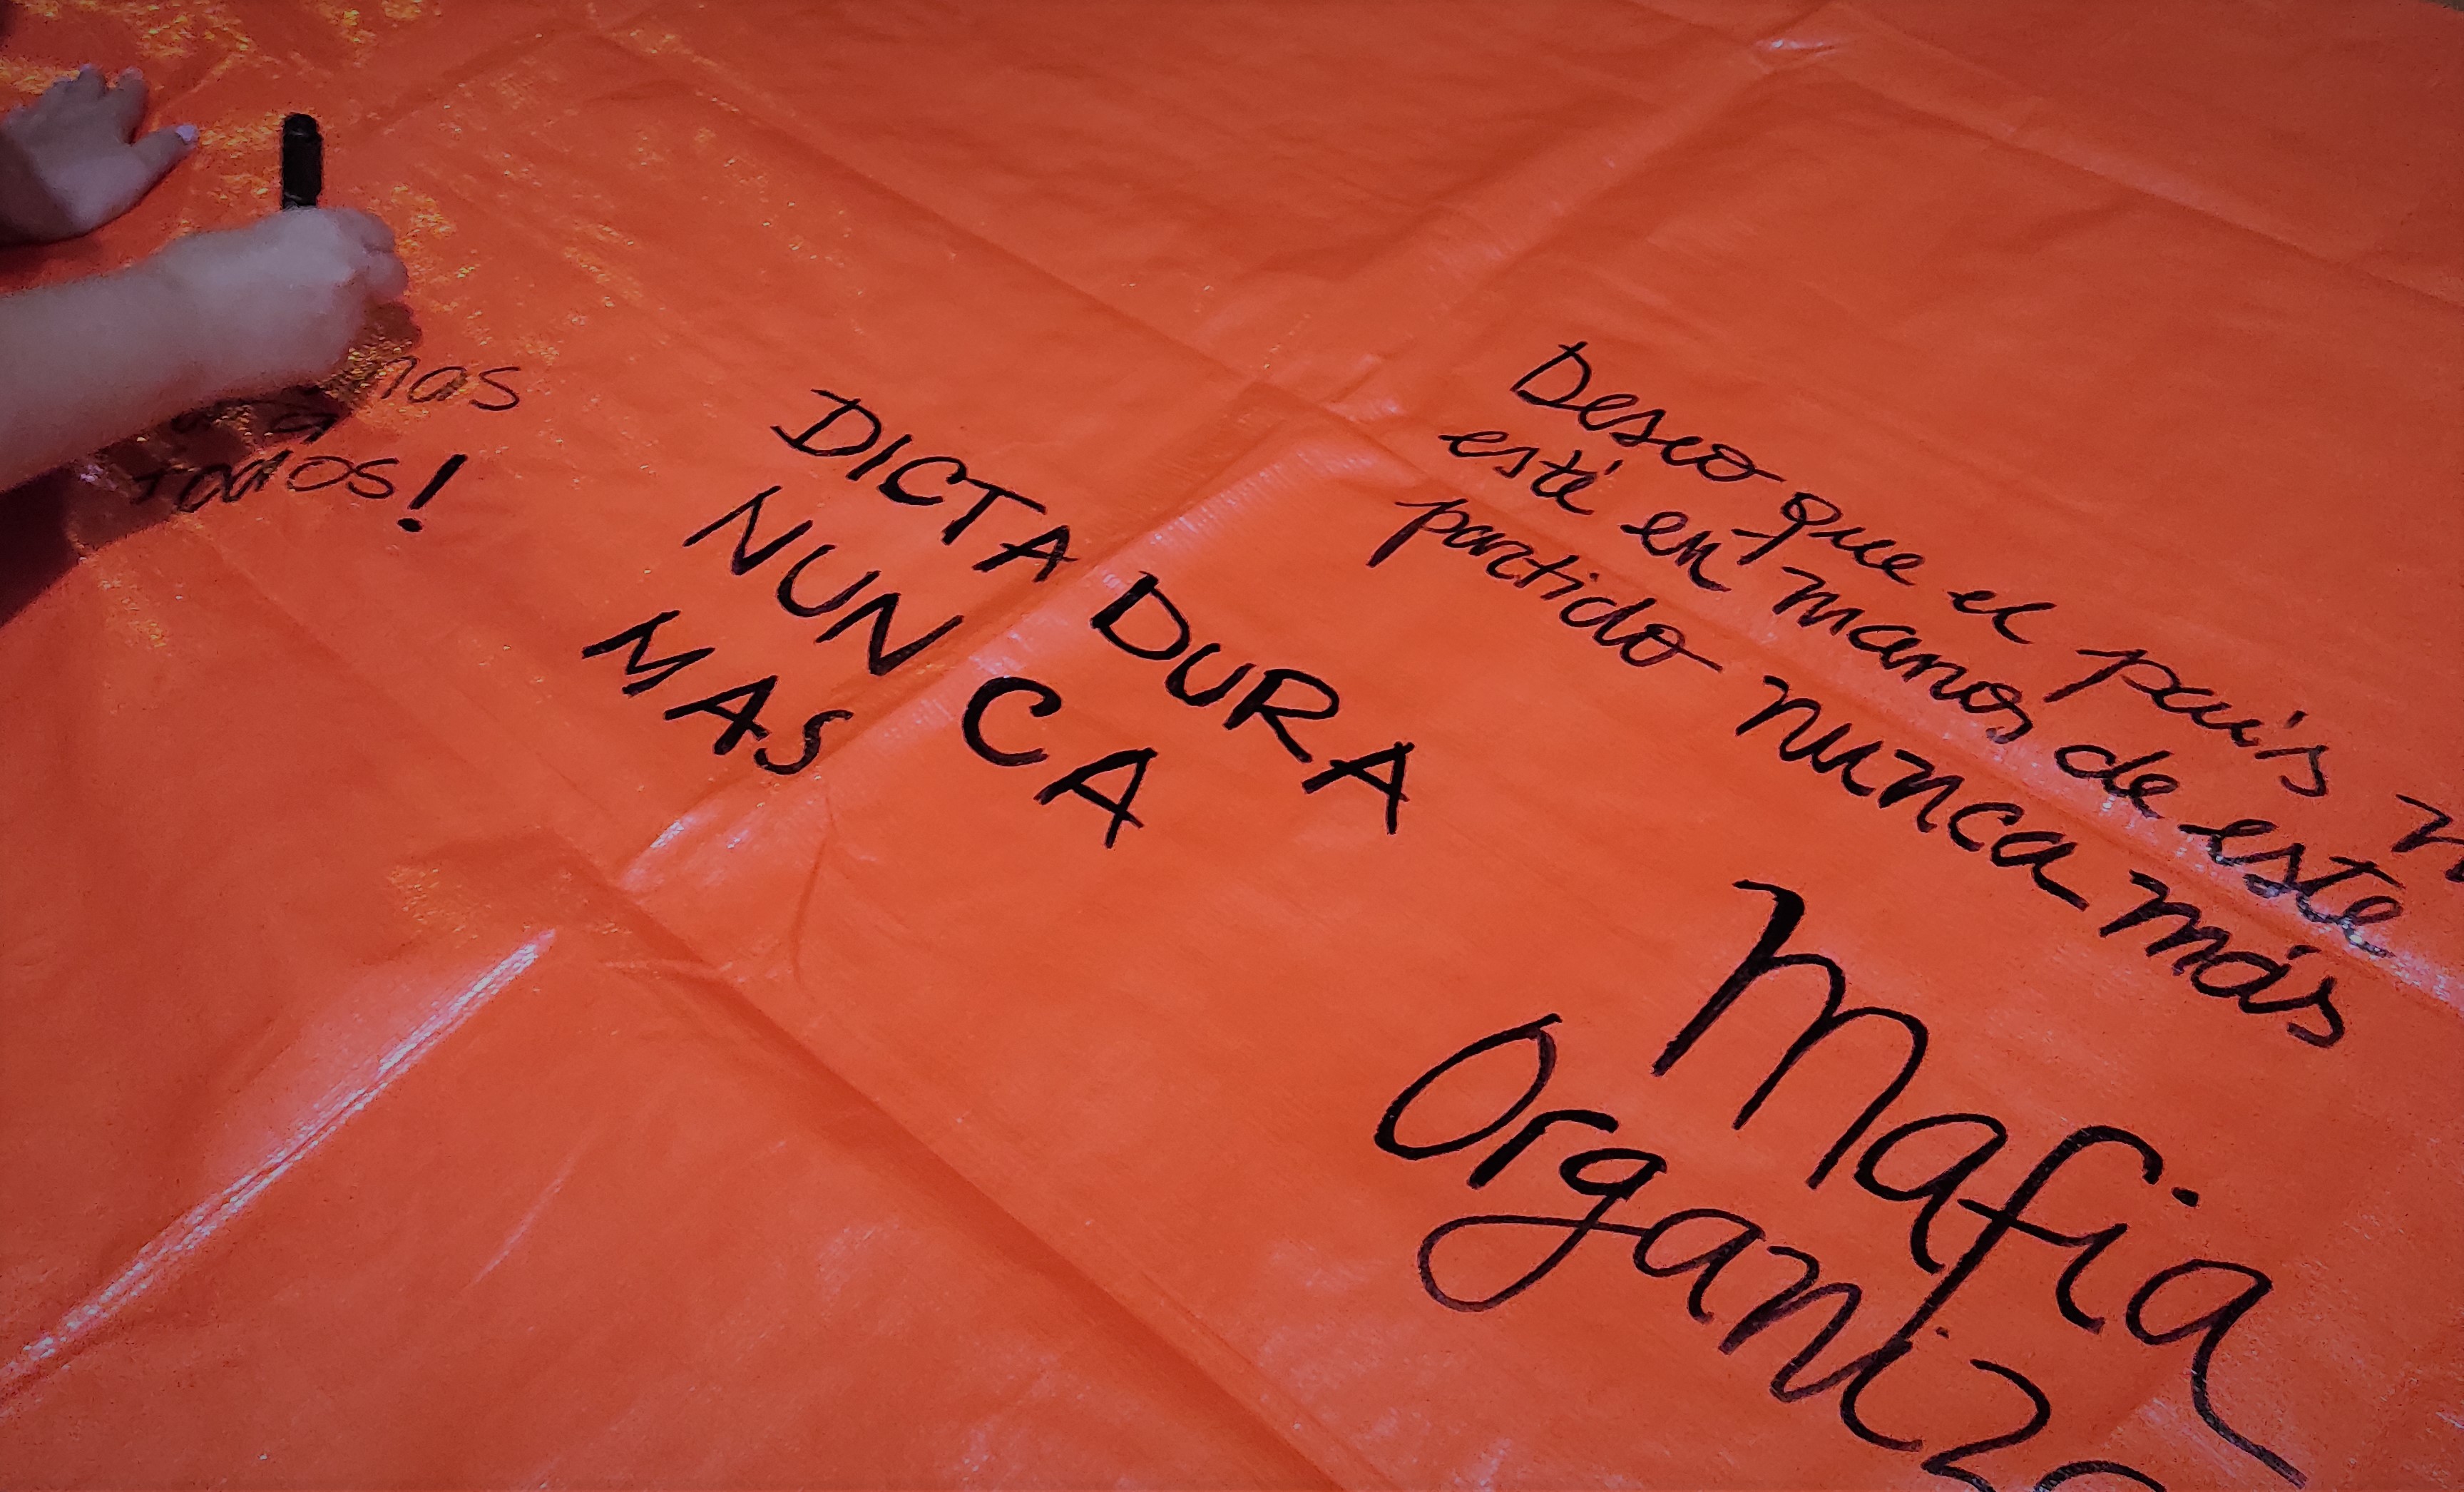 todos!
DICTADURA
NUNCA
MAS
Deseo que el país
esté en manos de este
partido nunca más
Mafia